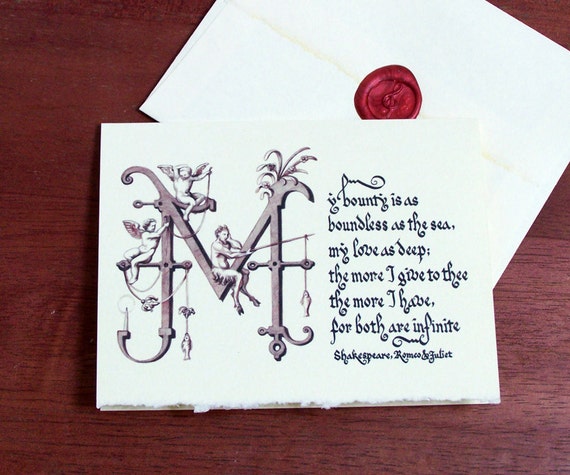 My bounty is as
boundless as the sea,
my love as deep;
the more I give to thee
the more I have,
for both are infinite
Shakespeare, Romeo & Juliet